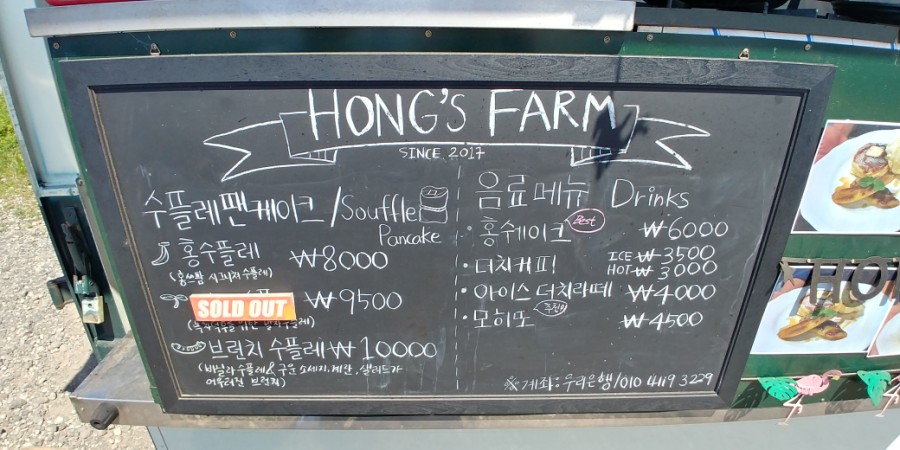 HONG'S FARM
SINCE 2017
수플레팬케이크 / Souffle Pancake
홍수플레 ₩8000
(홍쓰팜 시그니처 수플레)
SOLD OUT ₩9500
브런치 수플레 ₩10000
(바닐라 수플레 & 구운 소세지, 계란, 샐러드가
어우러진 브런치)
음료메뉴 Drinks
· 홍쉐이크 Best ₩6000
· 더치커피 ICE ₩3500
HOT ₩3000
· 아이스 더치라떼 ₩4000
· 모히또 ₩4500
※계좌: 우리은행/010 4119 3229
HO